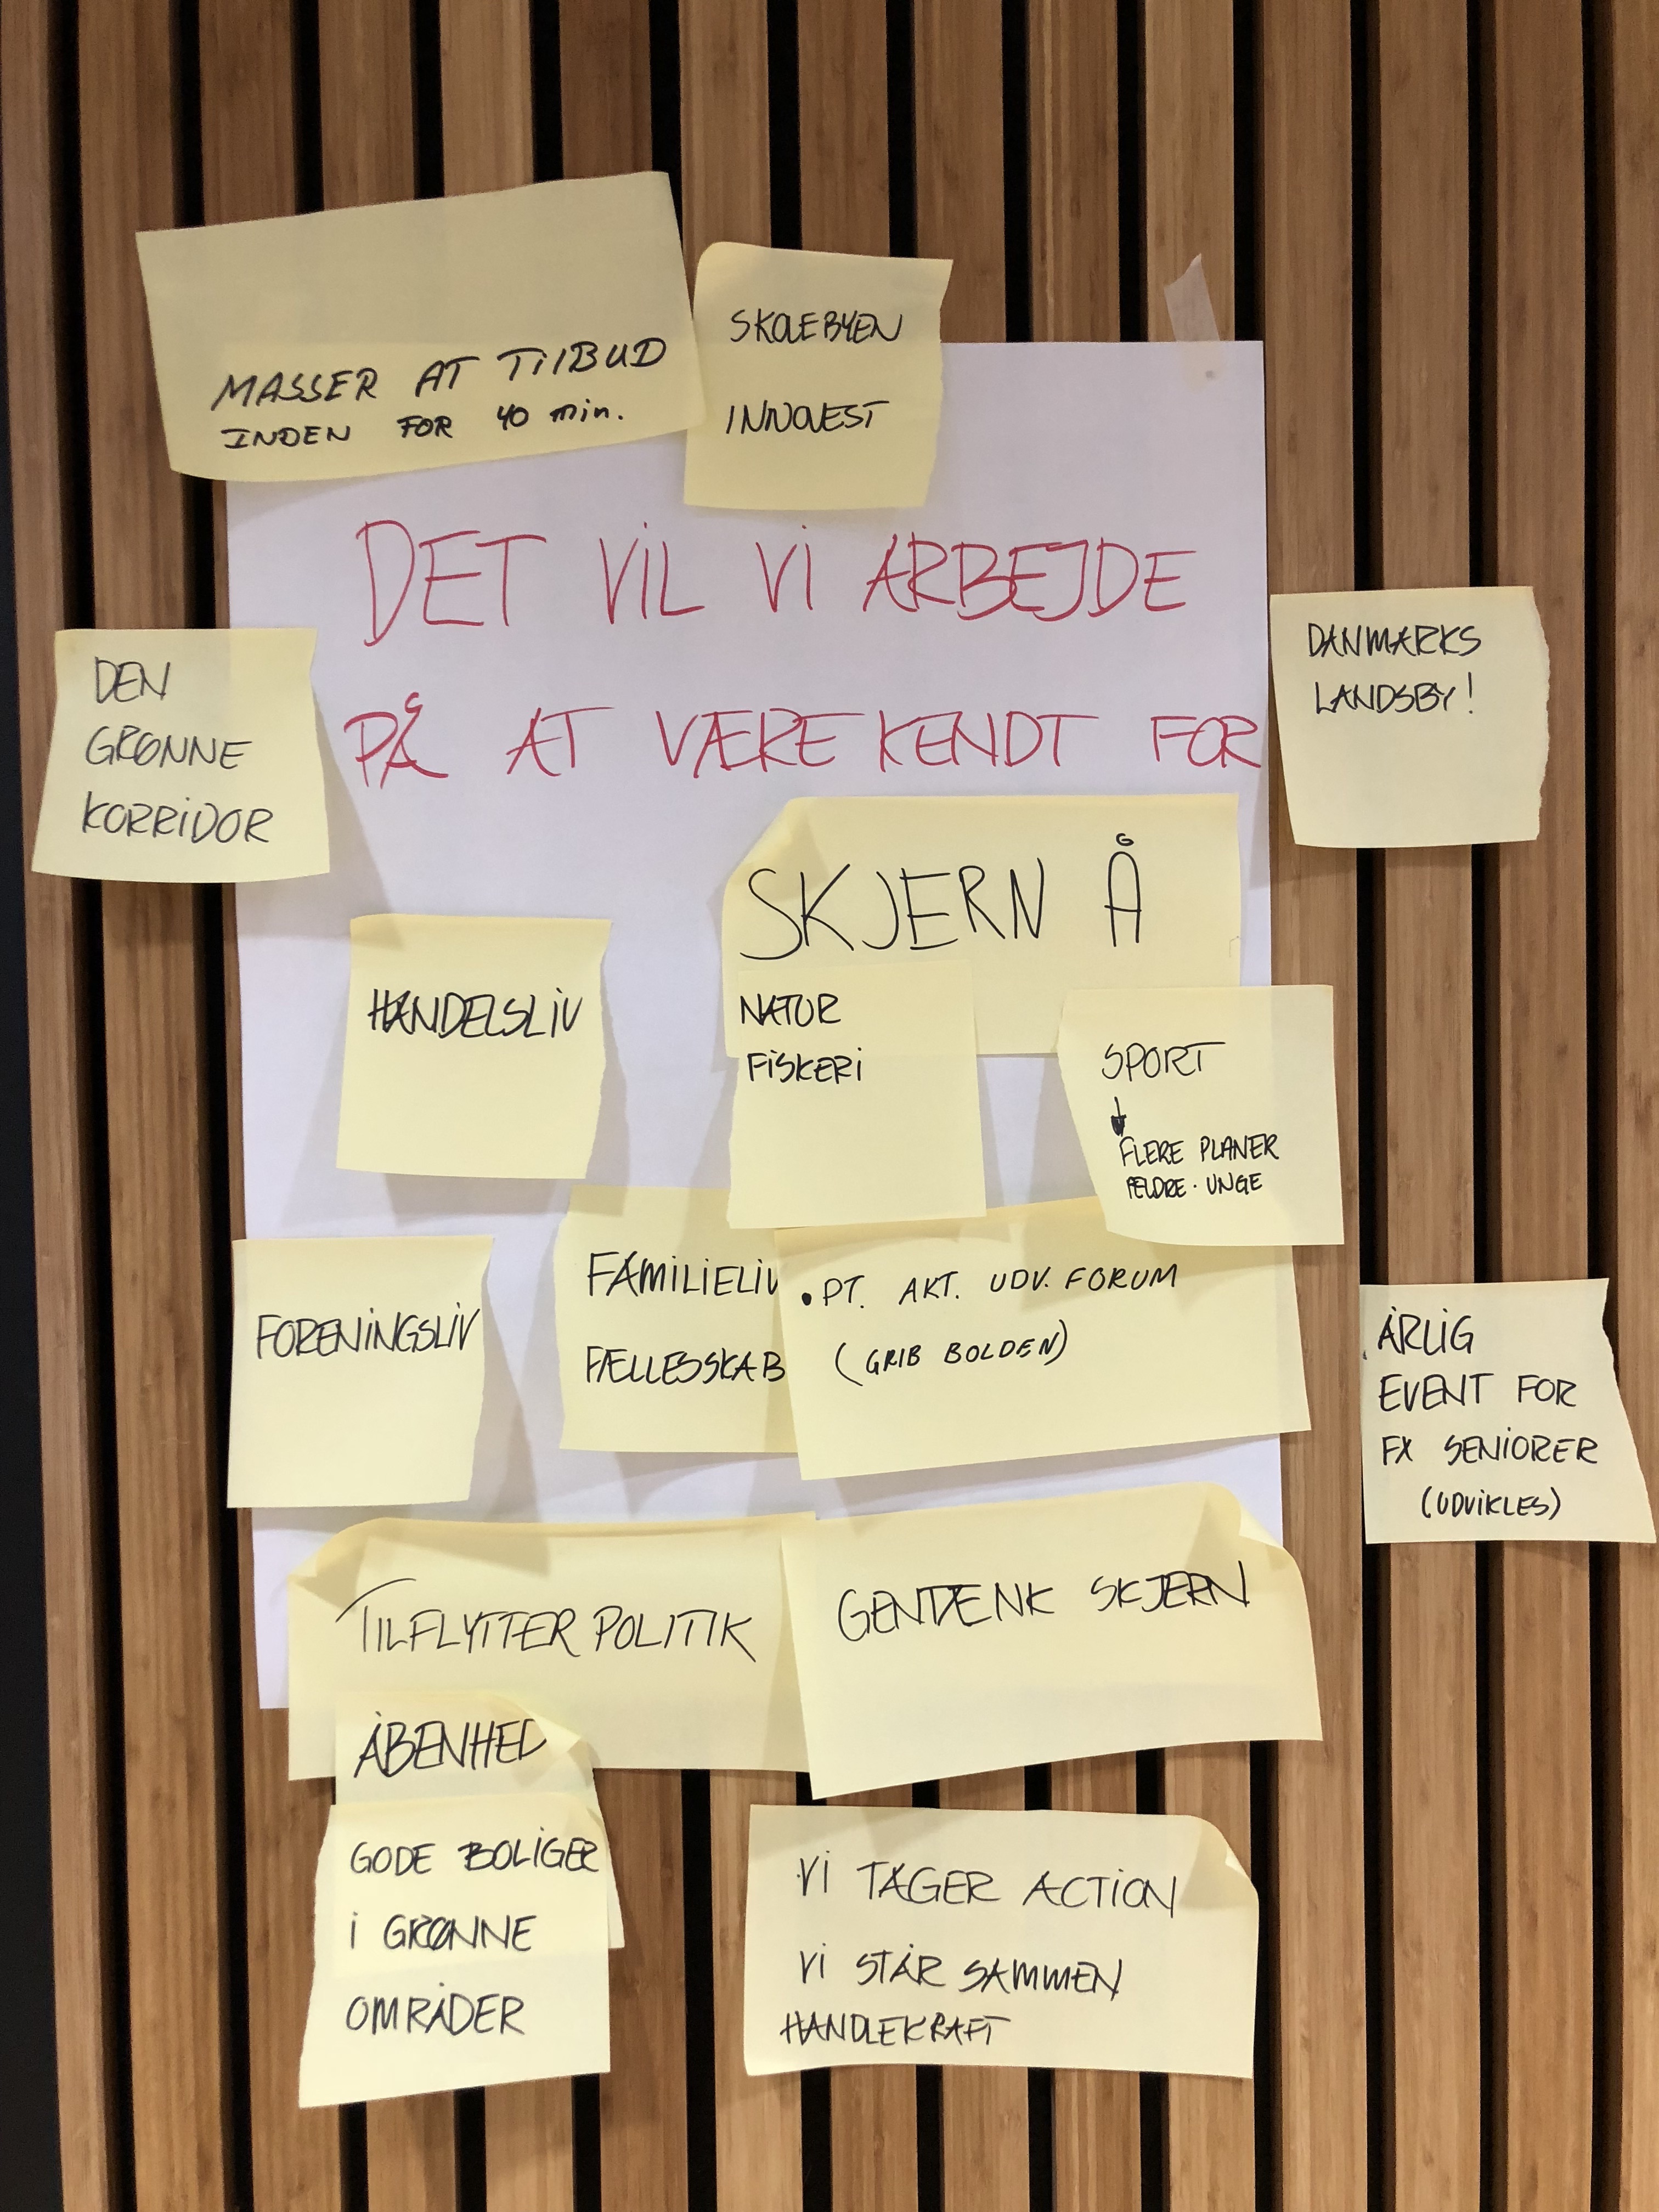 MASSER AT TILBUD
INDEN FOR 40 min.
SKOLEBYEN
INNOVEST
DET VIL VI ARBEJDE
PÅ AT VÆRE KENDT FOR
DEN
GRØNNE
KORRIDOR
DANMARKS
LANDSBY!
SKJERN Å
HANDELSLIV
NATUR
FISKERI
SPORT
FLERE PLANER
ÆLDRE · UNGE
FORENINGSLIV
FAMILIELIV
FÆLLESSKAB
• PT. AKT. UDV. FORUM
(GRIB BOLDEN)
ÅRLIG
EVENT FOR
FX SENIORER
(UDVIKLES)
TILFLYTTER POLITIK
GENTÆNK SKJERN
ÅBENHED
GODE BOLIGER
I GRØNNE
OMRÅDER
VI TAGER ACTION
VI STÅR SAMMEN
HANDLEKRAFT